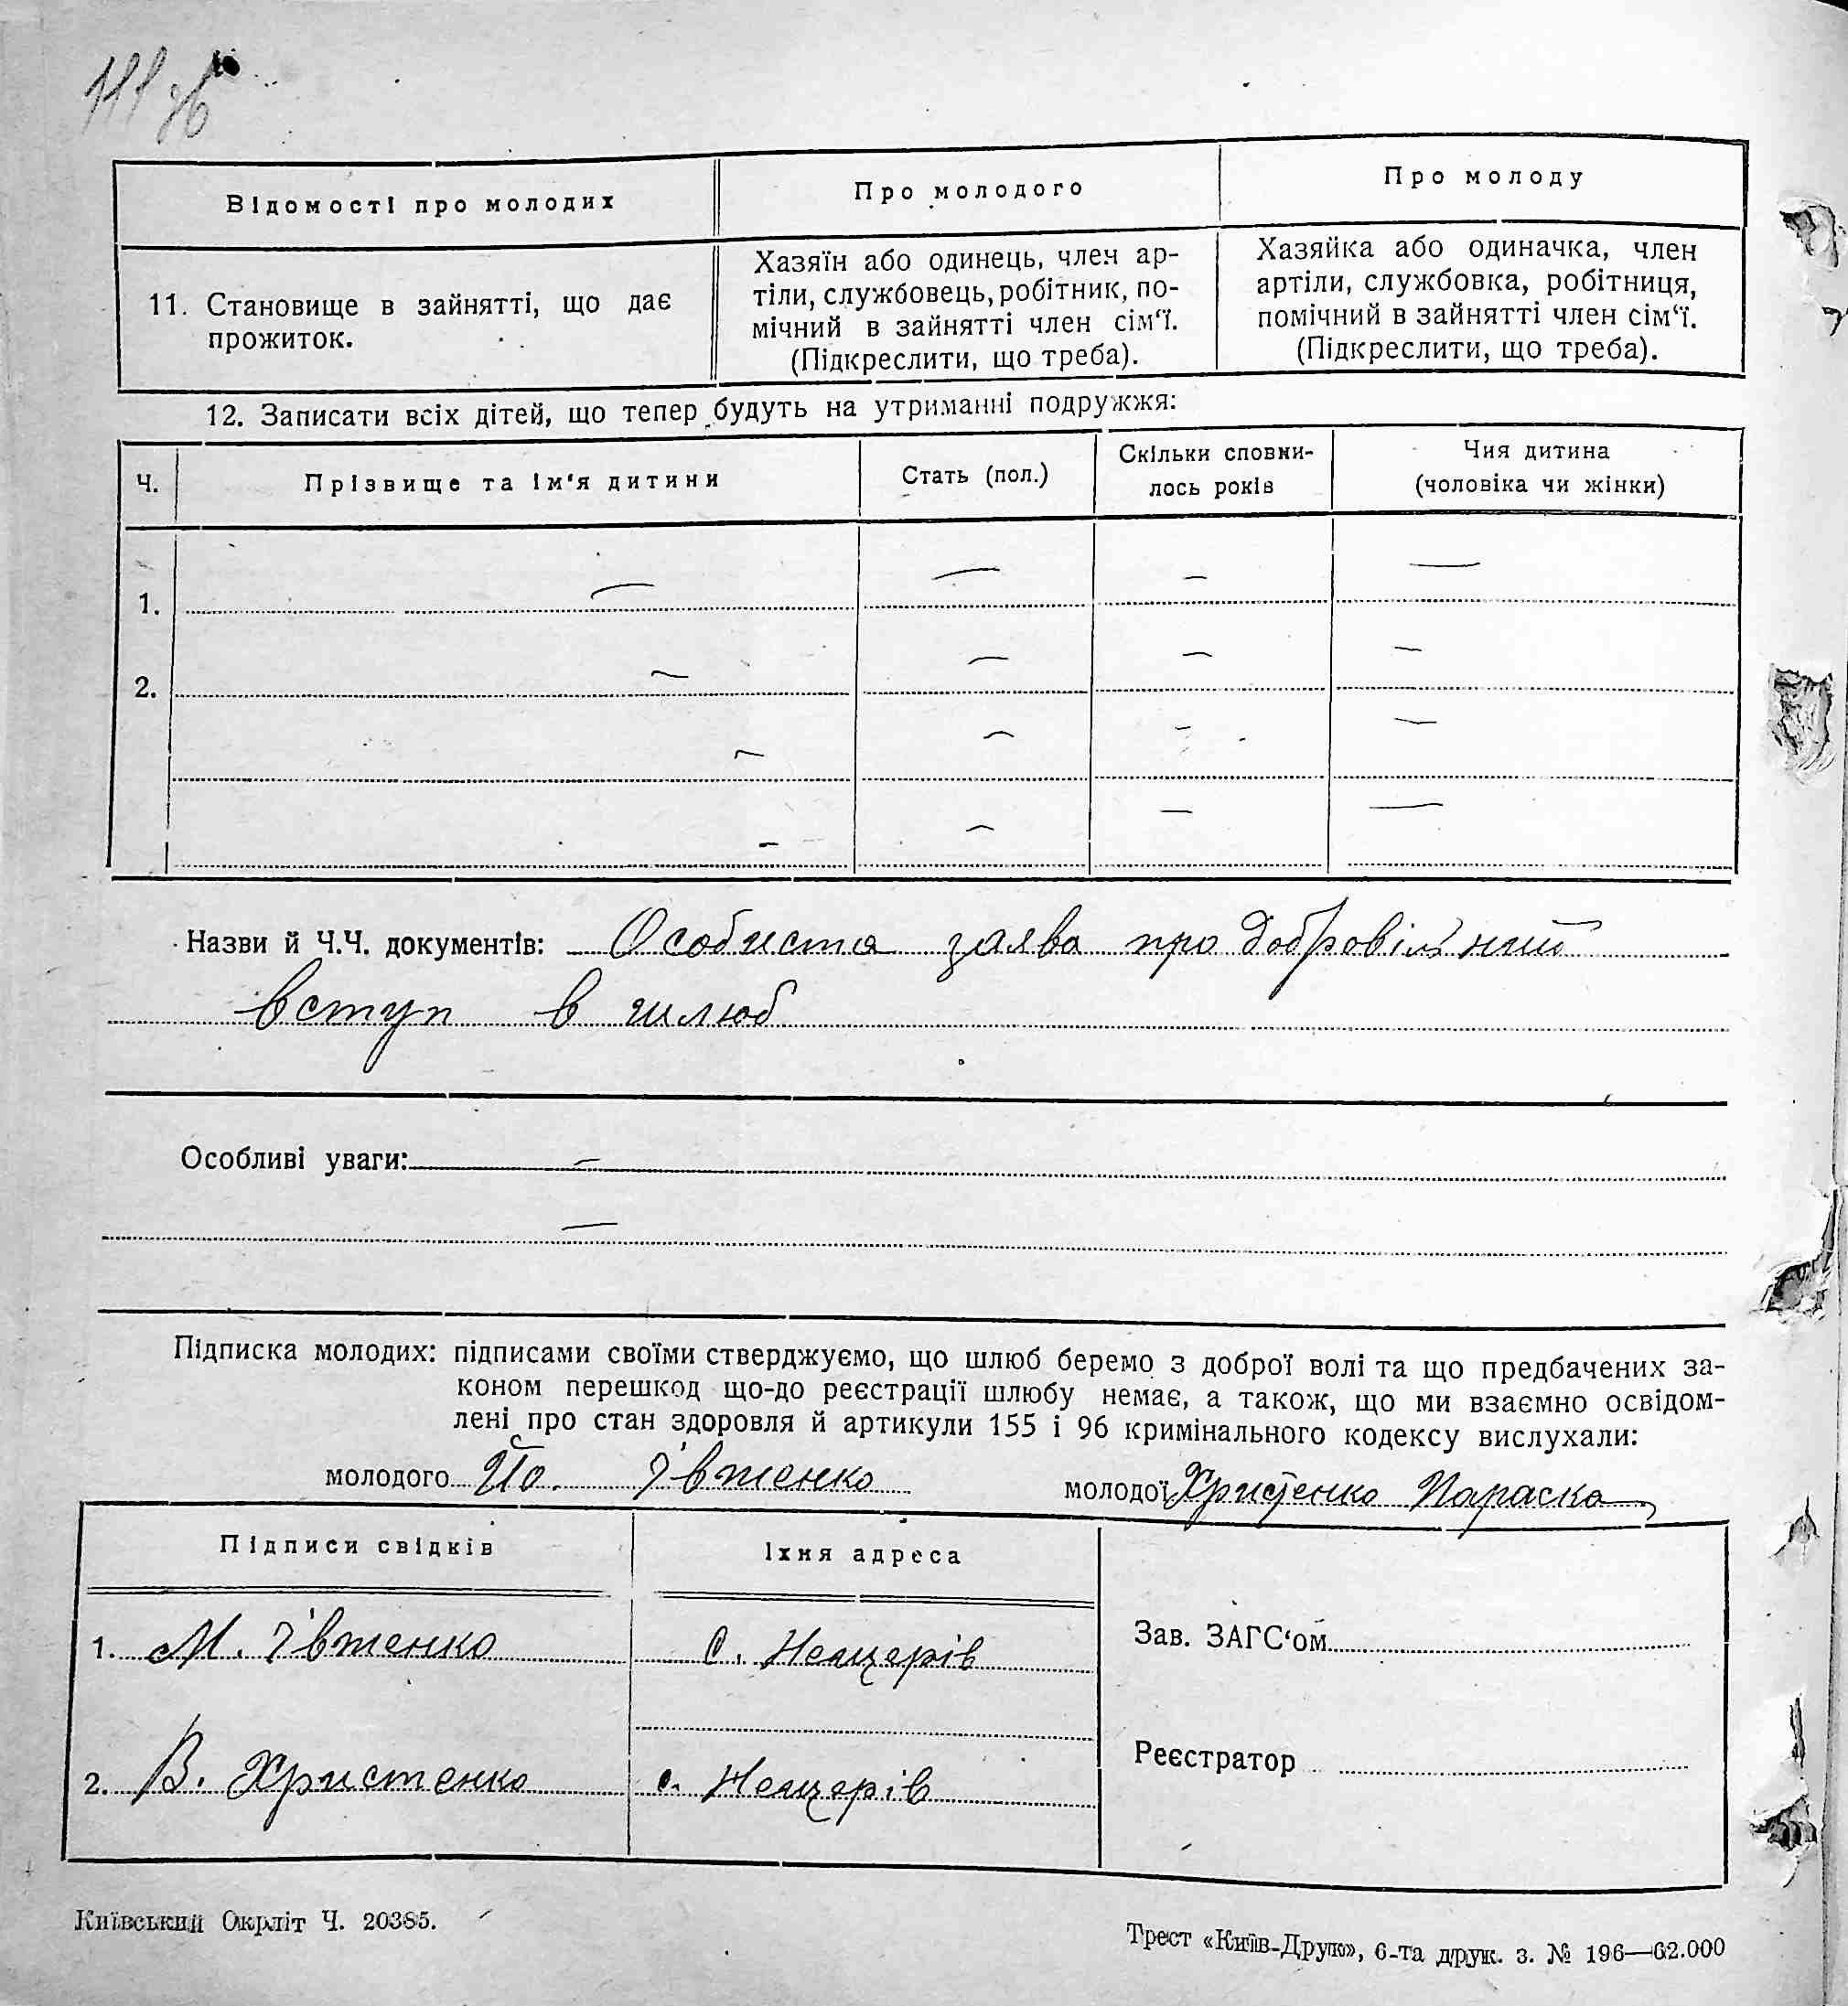 111 зв
Відомості про молодих
Про молодого
Про молоду
11. Становище в зайнятті, що дає
прожиток.
Хазяїн або одинець, член ар-
тіли, службовець, робітник, по-
мічний в зайнятті член сім‘ї.
(Підкреслити, що треба).
Хазяйка або одиначка, член
артіли, службовка, робітниця,
помічний в зайнятті член сім‘ї.
(Підкреслити, що треба).
12. Записати всіх дітей, що тепер будуть на утриманні подружжя:
Ч.
Прізвище та ім‘я дитини
Стать (пол.)
Скільки сповни-
лось років
Чия дитина
(чоловіка чи жінки)
1. — — — —
2. — — — —
— — — —
— — — —
Назви й Ч.Ч. документів: Особиста заява про добровільний
вступ в шлюб
Особливі уваги: —
—
Підписка молодих: підписами своїми стверджуємо, що шлюб беремо з доброї волі та що предбачених за-
коном перешкод що-до реєстрації шлюбу немає, а також, що ми взаємно освідом-
лені про стан здоровля й артикули 155 і 96 кримінального кодексу вислухали:
молодого Йо. Івженко молодої Христенко Параска
Підписи свідків
Іхня адреса
1. М. Івженко с. Нещерів
2. В. Христенко с. Нещерів
Зав. ЗАГС‘ом
Реєстратор
Київський Окрліт Ч. 20385.
Трест «Київ-Друк», 6-та друк. з. № 196—62.000